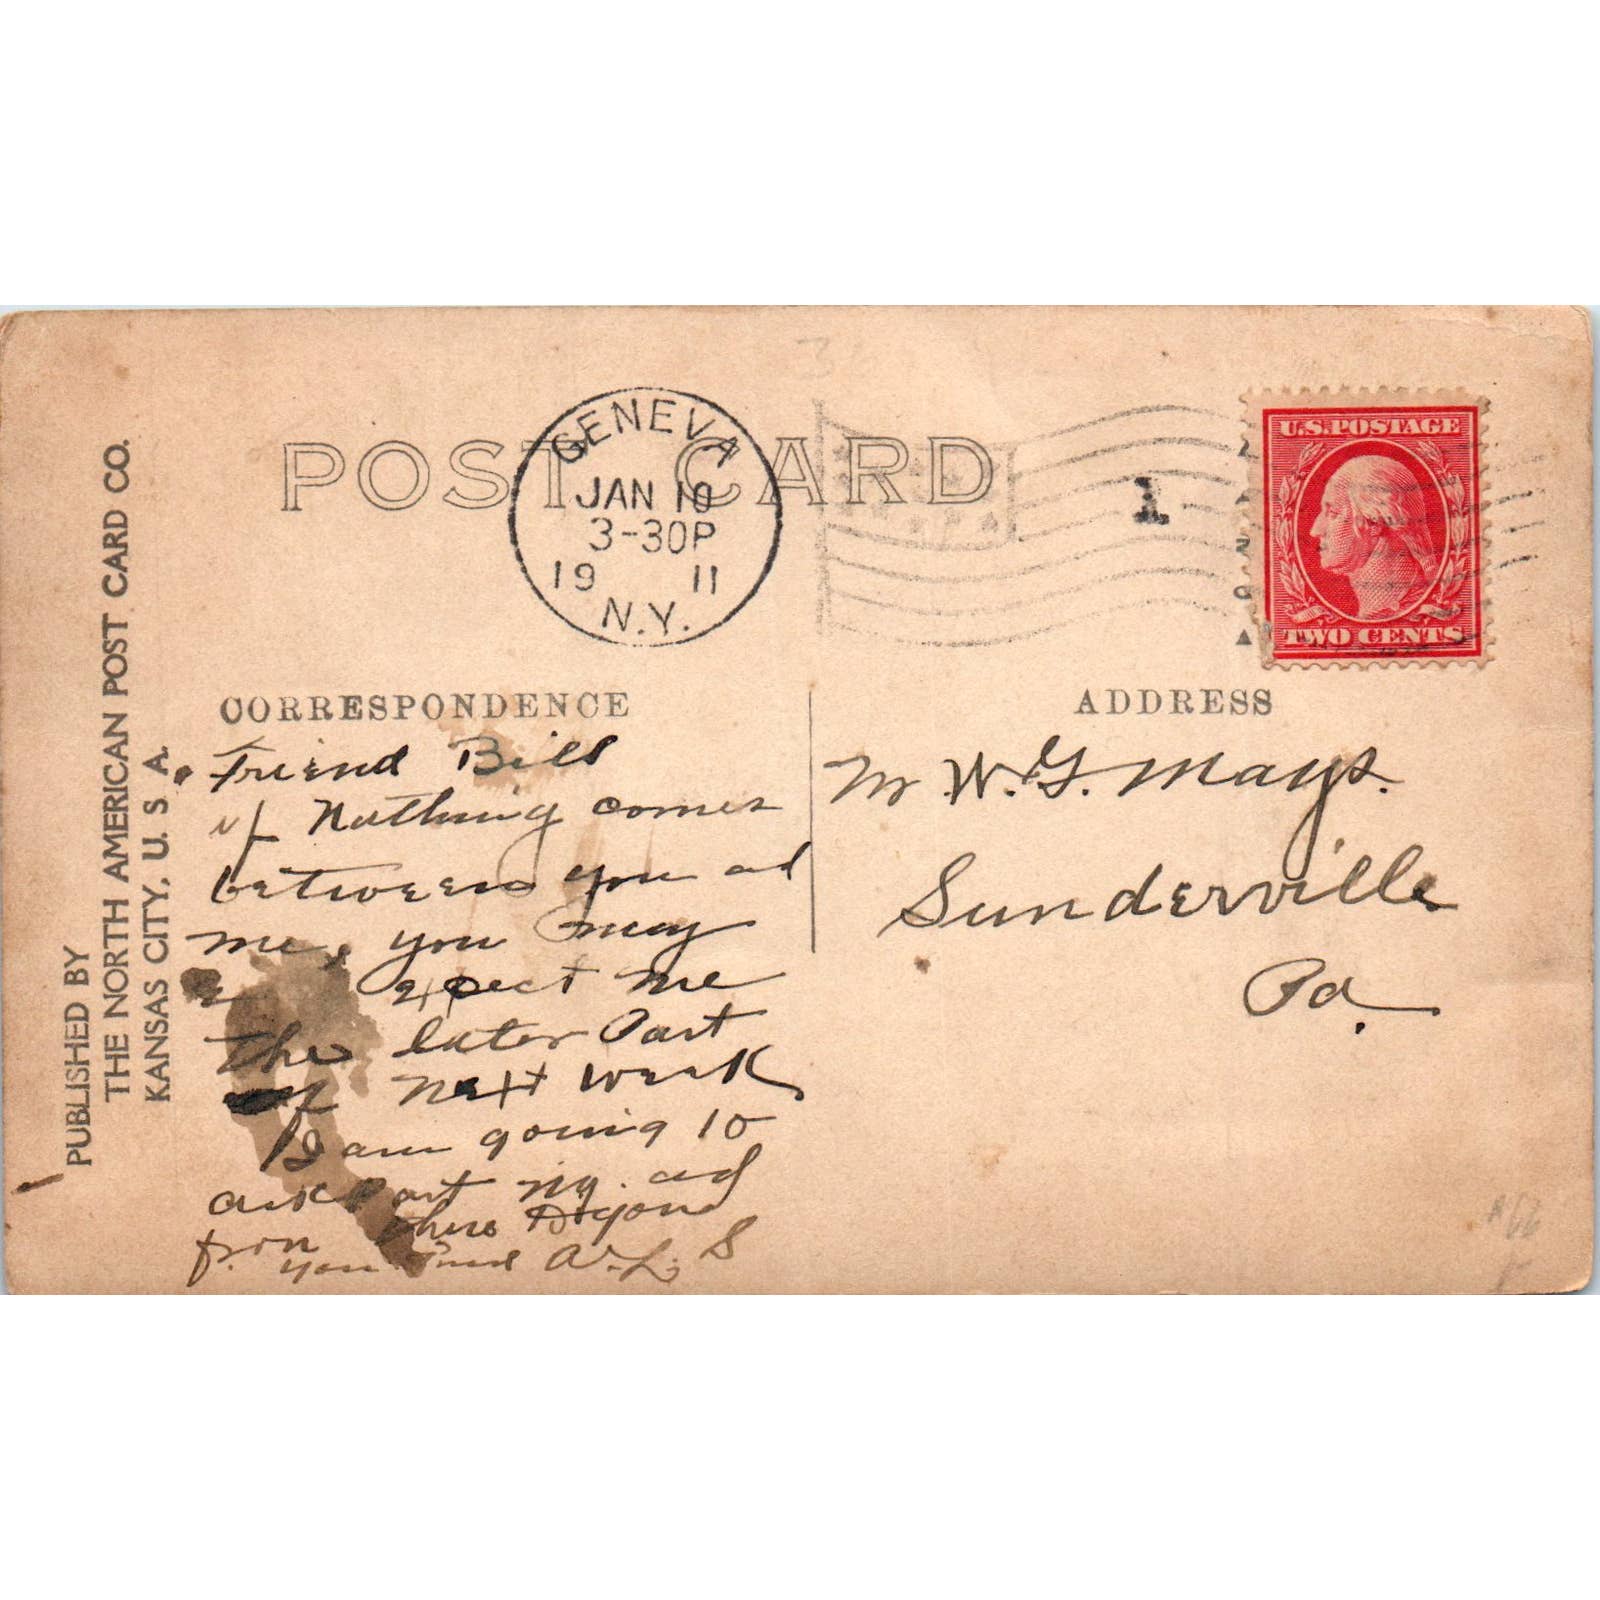 PUBLISHED BY
THE NORTH AMERICAN POST CARD CO.
KANSAS CITY, U. S. A.
POST CARD
GENEVA
JAN 10
3-30P
19 11
N.Y.
1
U.S. POSTAGE
TWO CENTS
CORRESPONDENCE
Friend Bill
if Nothing comes
between you ad
me, you may
expect me
the later Part
of next week
I am going to
Part ny. ad
from there
your Friend A. L. S
ADDRESS
Mr W. G. Mays.
Sunderville
Pa.